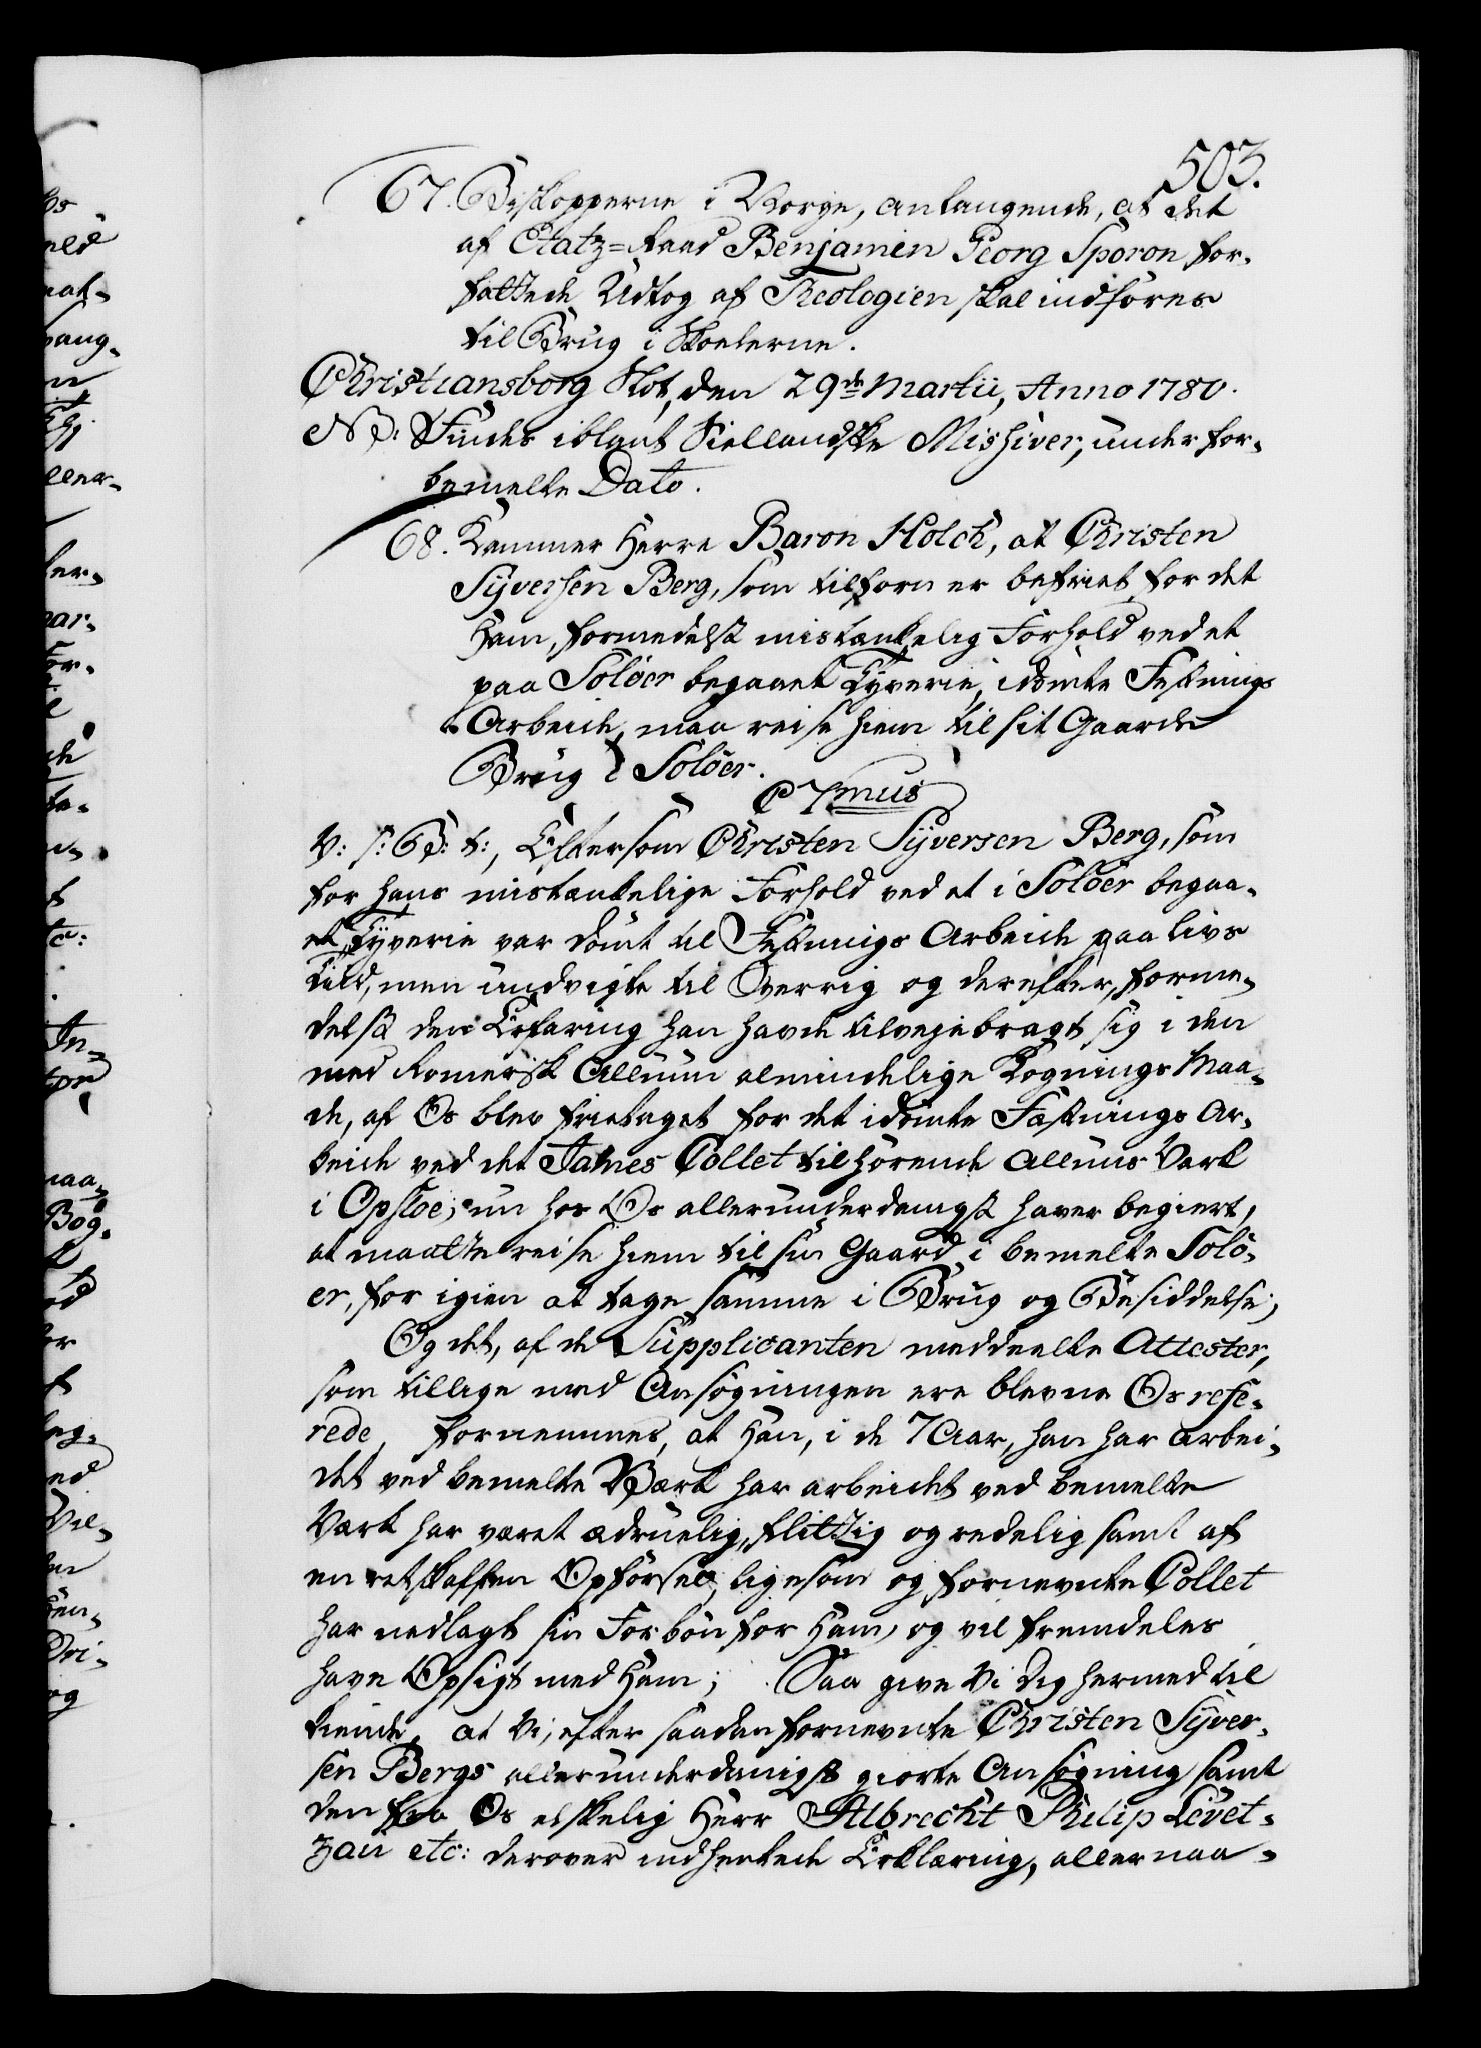 503.
67. Biskopperne i Norge, anlangende, at det
af Etatz=Raad Benjamin Georg Sporon for-
fattede Udtog af Theologien skal indføres
til Brug i Skolerne.
Christiansborg Slot, den 29de Martii, Anno 1780.
NB: Findes iblant Siellandske Missiver, under for-
bemelte Dato.
68. Kammer Herre Baron Holck, at Christen
Syversen Berg, som tilforn er befriet for det
Ham, formedelst mistænkelig Forhold ved et
paa Soløer begaaet Tyverie, idømte Festnings
Arbeide, maa reise hiem til sit Gaards
Brug i Soløer.
C 7mus
V: S: G: B: t:, Eftersom Christen Syversen Berg, som
for hans mistænkelige Forhold ved et i Soløer begaa-
et Tyverie var dømt til Festnings Arbeide paa Livs
Tiid, men undvigte til Sverrig og derefter, forme-
delst den Erfaring han havde tilvejebragt sig i den
med Romersk Alluun almindelige Kognings Maa-
de, af Os blev fritaget for det idømte Fæstnings Ar-
beide ved det James Collet tilhørende Alluns Værk
i Opsloe; nu hos Os allerunderdanigst haver begiert,
at maatte reise hiem til sin Gaard i bemelte Solø-
er, for igien at tage samme i Brug og Besiddelse;
Og det, af de Supplicanten meddeelte Attester,
som tillige med Ansøgningen ere blevne Os refe-
rede, fornemmes, at Han, i de 7 Aar, han har arbei-
det ved bemelte Værk har arbeidet ved bemelte
Værk har været ædruelig, flittig og redelig samt af
en retskaffen Opførsel, ligesom og fornevnte Collet
har nedlagt sin Forbøn for Ham, og vil fremdeles
have Opsigt med Ham; Saa give Vi Dig hermed til
kiende, at Vi, efter saadan fornevnte Christen Syver-
sen Bergs allerunderdanigst giorte Ansøgning samt
den fra Os elskelig Herr Albrecht Philip Levet-
zau etc: derover indhentede Erklæring, allernaa-